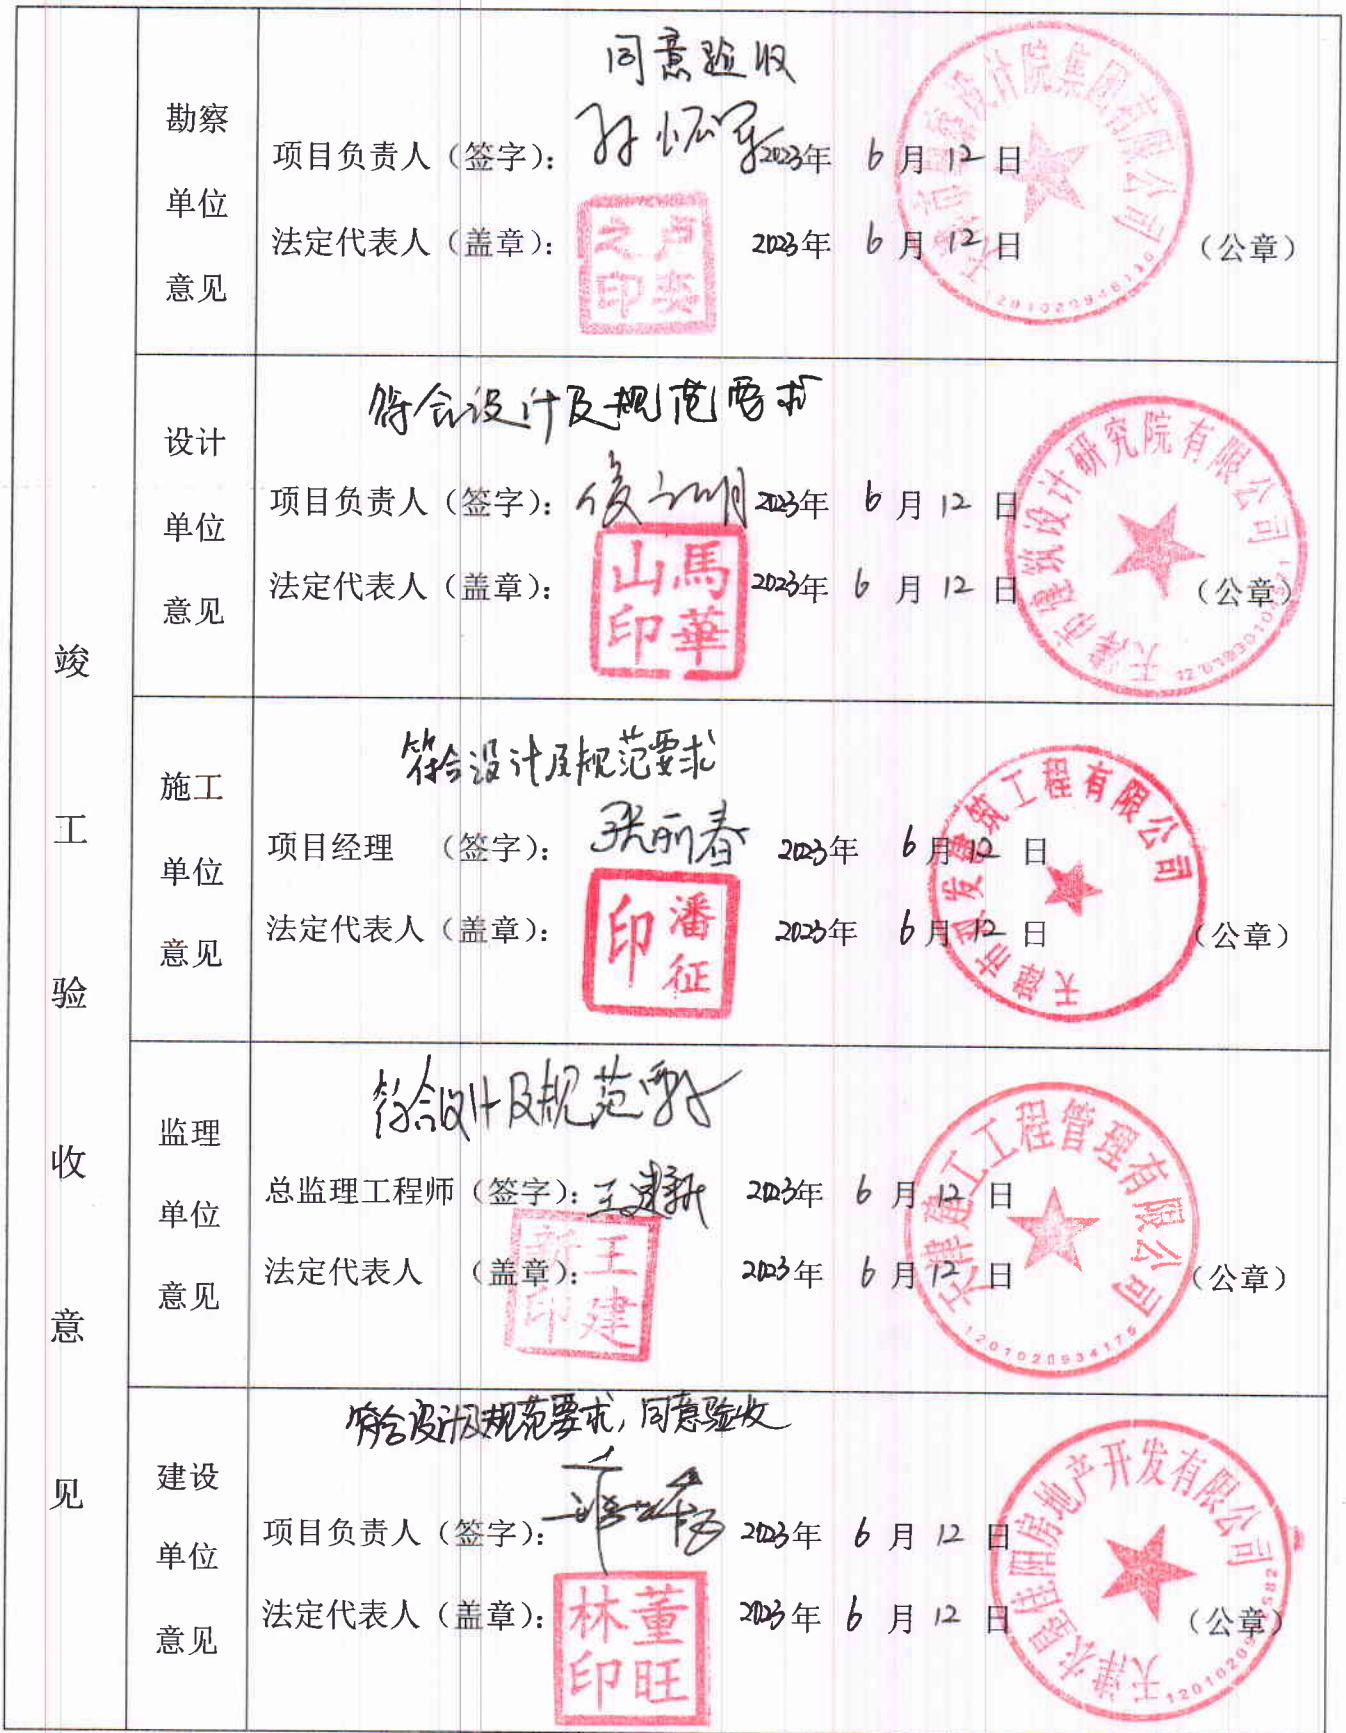 竣工验收意见
勘察单位意见
同意验收
项目负责人（签字）： 2023年 6月12日
法定代表人（盖章）： 2023年 6月12日 （公章）
卢奕之印
设计院集团有限公司
设计单位意见
符合设计及规范要求
项目负责人（签字）： 2023年 6月12日
法定代表人（盖章）： 2023年 6月12日 （公章）
馬華山印
天津市建筑设计研究院有限公司
施工单位意见
符合设计及规范要求
项目经理 （签字）： 张丽春 2023年 6月12日
法定代表人（盖章）： 2023年 6月12日 （公章）
潘征印
天津市 发建筑工程有限公司
监理单位意见
符合设计及规范要求
总监理工程师（签字）： 王建新 2023年 6月12日
法定代表人 （盖章）： 2023年 6月12日 （公章）
王建新印
天津建工工程管理有限公司
1201020934175
建设单位意见
符合设计及规范要求，同意验收
项目负责人（签字）： 2023年 6月12日
法定代表人（盖章）： 2023年 6月12日 （公章）
董旺林印
天津农垦佳阳房地产开发有限公司